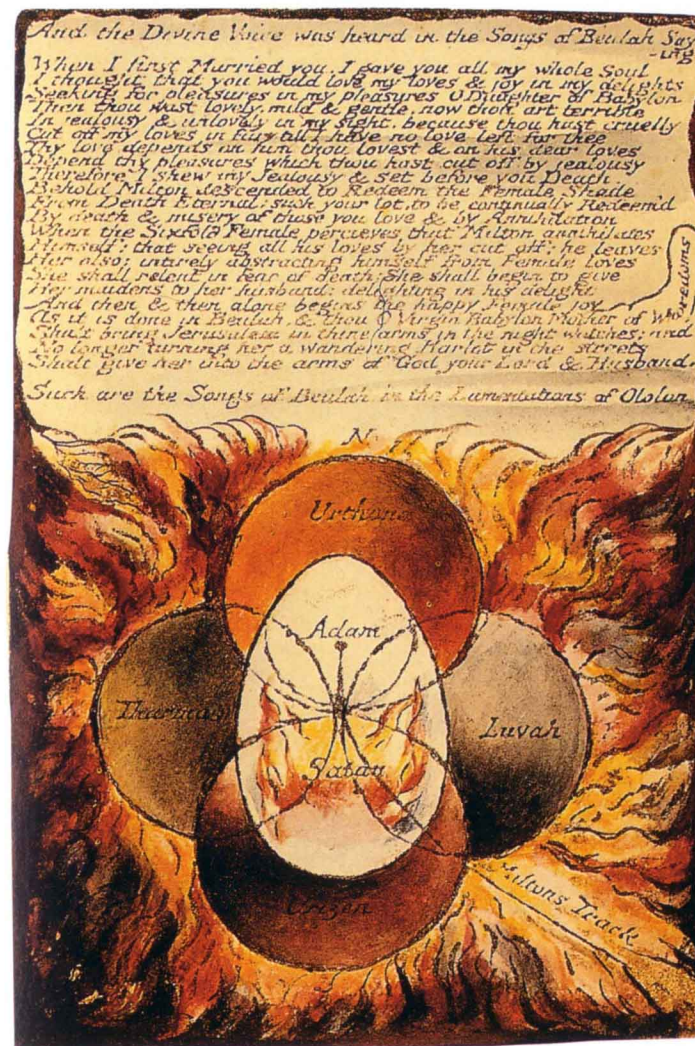 And the Divine Voice was heard in the Songs of Beulah Say
-ing
When I first Married you, I gave you all my whole Soul
I thought that you would love my loves & joy in my delights
Seeking for pleasures in my pleasures O Daughter of Babylon
Then thou wast lovely, mild & gentle, now thou art terrible
In jealousy & unlovely in my sight, because thou hast cruelly
Cut off my loves in fury till I have no love left for thee
Thy love depends on him thou lovest & on his dear loves
Depend thy pleasures which thou hast cut off by jealousy
Therefore I shew my Jealousy & set before you Death.
Behold Milton descended to Redeem the Female Shade
From Death Eternal; such your lot, to be continually Redeem'd
By death & misery of those you love & by Annihilation
When the Sixfold Female percieves that Milton annihilates
Himself: that seeing all his loves by her cut off: he leaves
Her also: intirely abstracting himself from Female loves
She shall relent in fear of death: She shall begin to give
Her maidens to her husband: delighting in his delight
And then & then alone begins the happy Female joy
As it is done in Beulah, & thou O Virgin Babylon Mother of Whoredoms
Shalt bring Jerusalem in thine arms in the night watches; and
No longer turning her a wandering Harlot in the streets
Shalt give her into the arms of God your Lord & Husband.
Such are the Songs of Beulah in the Lamentations of Ololon
N
Urthona
Adam
Tharmas
Luvah
Satan
Urizen
Miltons Track